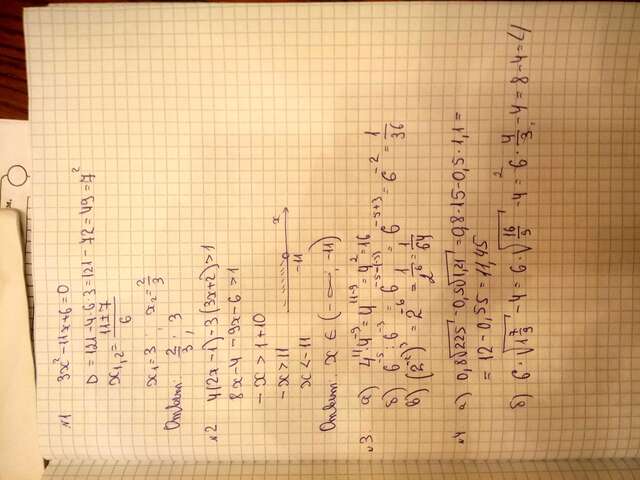 №1 3x²-11x+6=0
D=121-4·6·3=121-72=49=7²
x₁,₂=(11±7)/6
x₁=3; x₂=2/3
Ответ: 2/3; 3
№2 4(2x-1)-3(3x+2)>1
8x-4-9x-6>1
-x>1+10
-x>11
x<-11
-11 x
Ответ: x∈(-∞;-11)
№3 а) 4¹¹·4⁻⁹=4¹¹⁻⁹=4²=16
б) 6⁻⁵:6⁻³=6⁻⁵⁻⁽⁻³⁾=6⁻⁵⁺³=6⁻²=1/36
в) (2⁻²)³=2⁻⁶=1/2⁶=1/64
№4 а) 0,8√225-0,5√1,21=0,8·15-0,5·1,1=
=12-0,55=11,45
б) 6·√(1 7/9)-4=6·√(16/9)-4=6·4/3-4=8-4=4